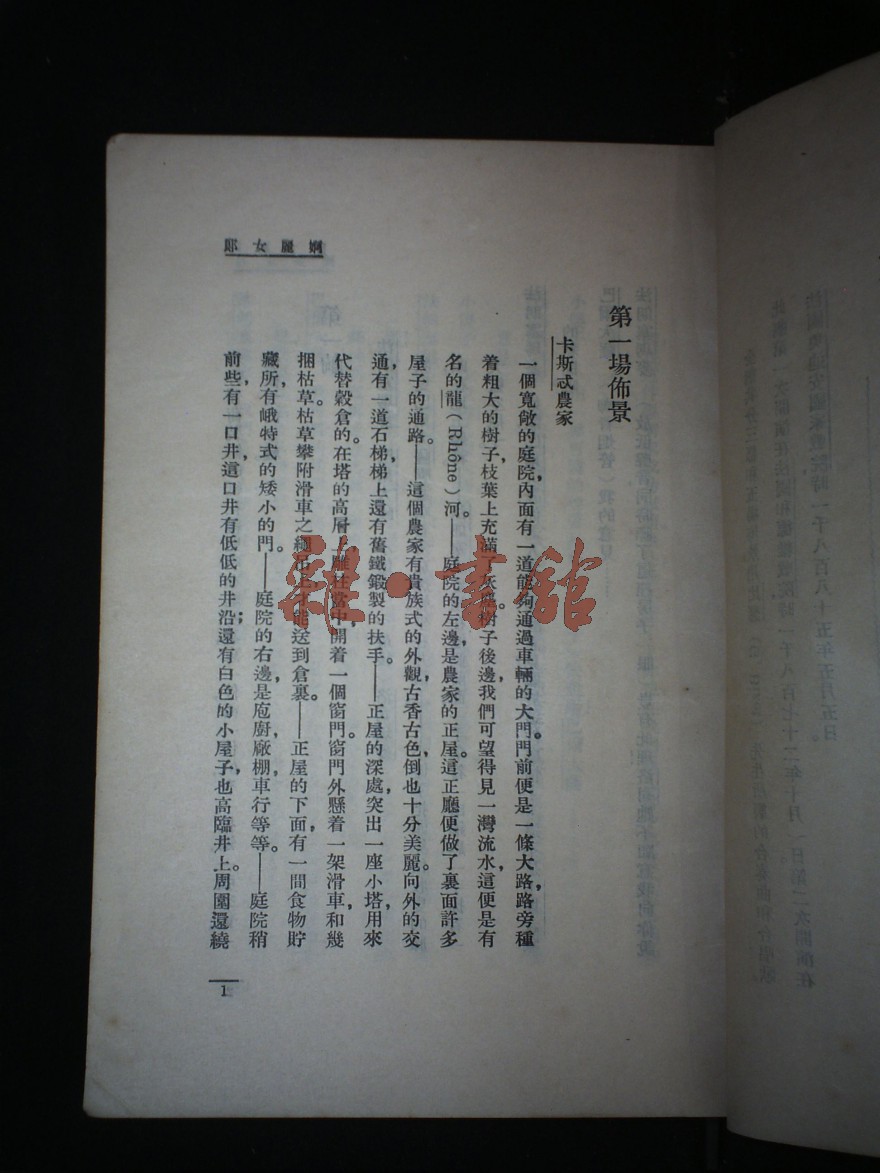 婀麗女郎
第一場佈景
卡斯忒農家
一個寬敞的庭院，內面有一道能夠通過車輛的大門。門前便是一條大路，路旁種
着粗大的樹子，枝葉上充滿了灰塵。樹子後邊，我們可望得見一灣流水，這便是有
名的龍（Rhône）河。——庭院的左邊是農家的正屋。這正廳便做了裏面許多
屋子的通路。——這個農家有貴族式的外觀，古香古色，倒也十分美麗。向外的交
通，有一道石梯，梯上還有舊鐵鍛製的扶手。——正屋的深處，突出一座小塔，用來
代替穀倉的。在塔的高層上，雕柱當中，開着一個窗門。窗門外懸着一架滑車，和幾
捆枯草。枯草攀附滑車之繩吊上，才能送到倉裏。——正屋的下面，有一間食物貯
藏所，有峨特式的矮小的門。——庭院的右邊是庖廚，廠棚，車行等等。——庭院稍
前些，有一口井，這口井有低低的井沿；還有白色的小屋子，也高臨井上。周圍還繞
1
雜·書館